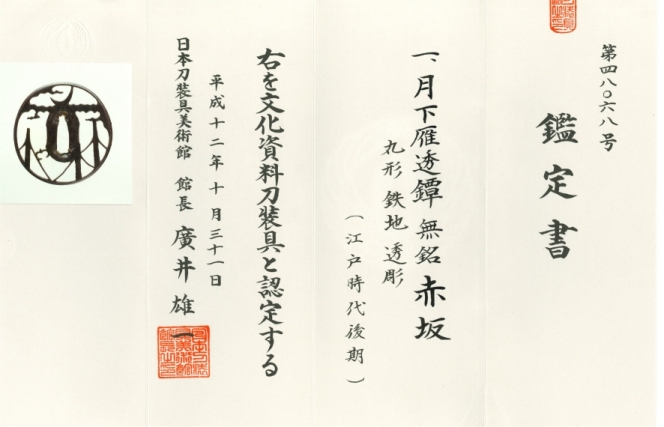 第四八〇六八号
鑑定書
一、月下雁透鐔 無銘 赤坂
丸形 鉄地 透彫
（江戸時代後期）
右を文化資料刀装具と認定する
平成十二年十月三十一日
日本刀装具美術館 館長 廣井雄一